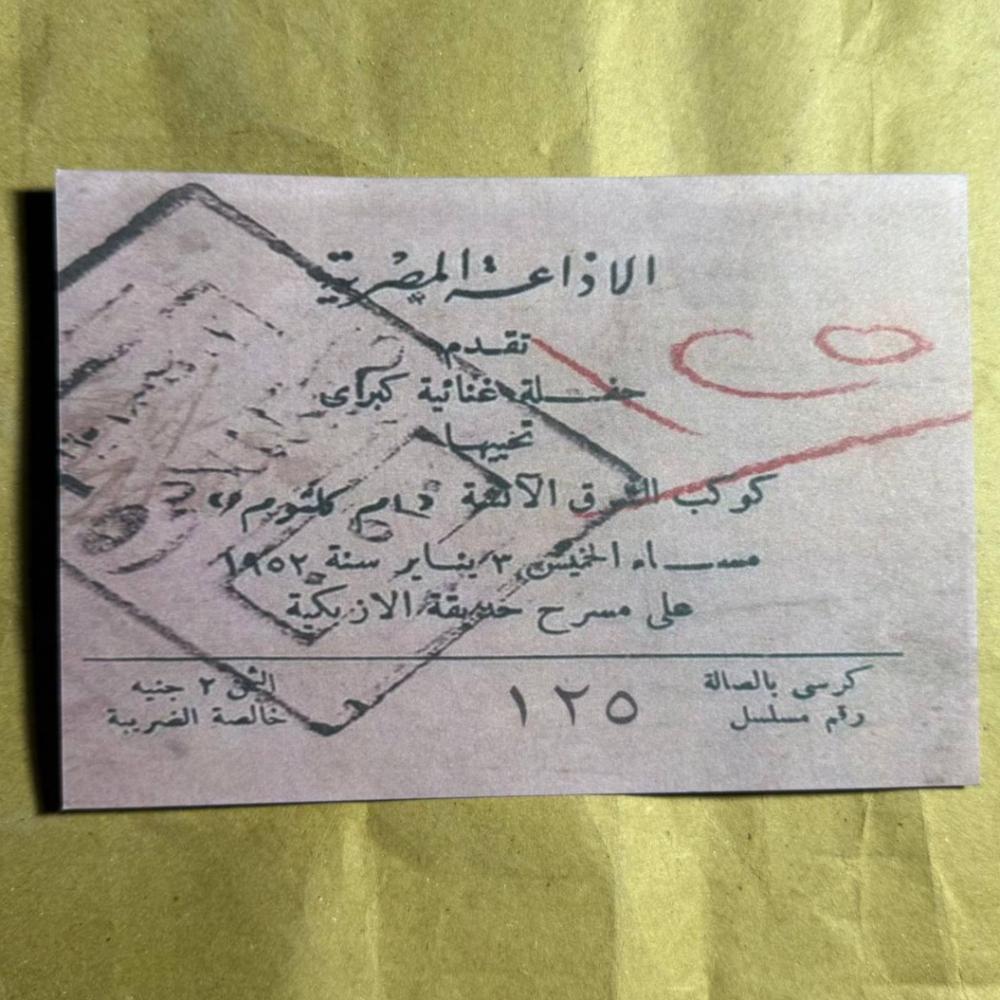 الاذاعة المصرية
تقدم
حفلة غنائية كبرى
تحييها
كوكب الشرق الآنسة «ام كلثوم»
مساء الخميس ٣ يناير سنة ١٩٥٢
على مسرح حديقة الازبكية
كرسى بالصالة
رقم مسلسل
١٢٥
الثمن ٢ جنيه
خالصة الضريبة